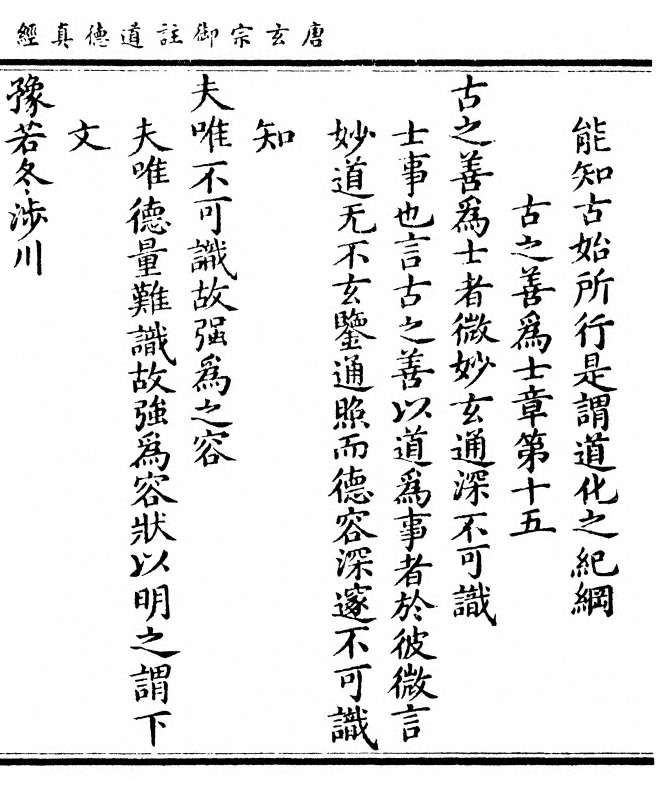 唐玄宗御註道德真經
能知古始所行是謂道化之紀綱
古之善爲士章第十五
古之善爲士者微妙玄通深不可識
士事也言古之善以道爲事者於彼微言
妙道无不玄鑒通照而德容深邃不可識
知
夫唯不可識故强爲之容
夫唯德量難識故強爲容狀以明之謂下
文
豫若冬涉川